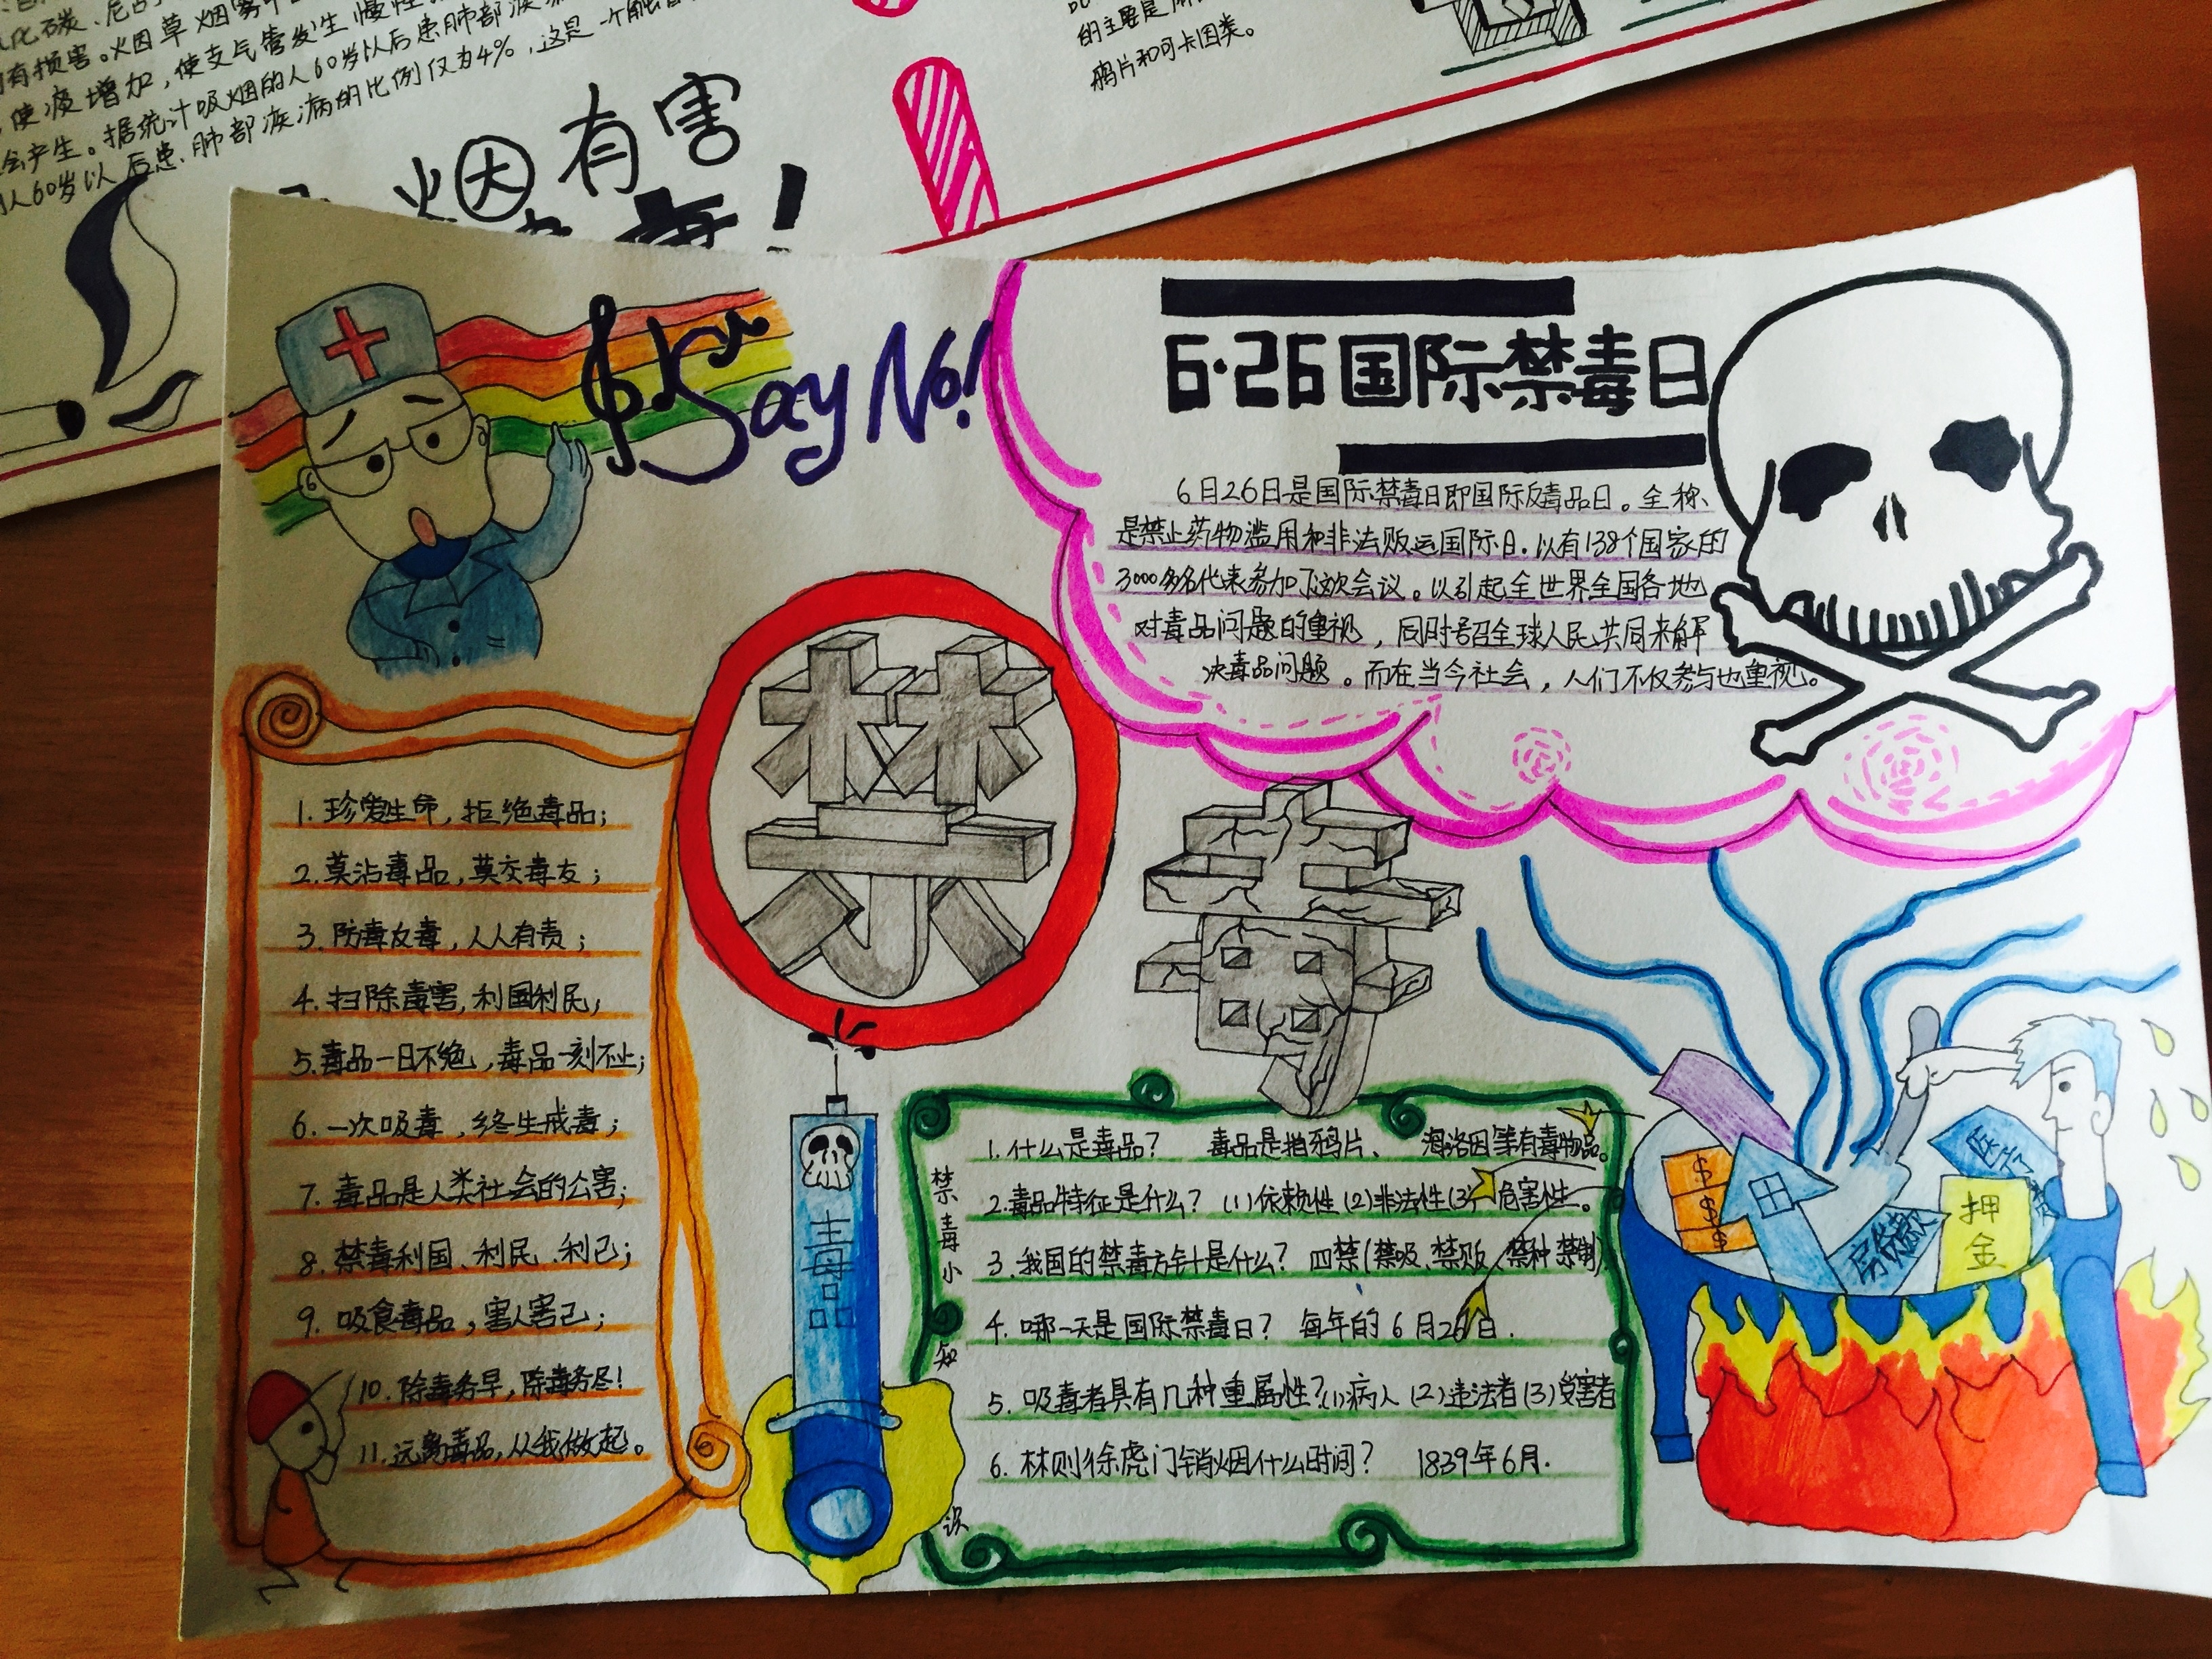 化碳、尼古
有损害。烟草烟雾中
使痰增加，使支气管发生慢性
会产生。据统计吸烟的人60岁以后患肺部疾
人60岁以后患肺部疾病的比例仅为4%，这是一个
的主要是
鸦片和可卡因类。
烟有害
毒！
Say No!
6·26国际禁毒日
6月26日是国际禁毒日即国际反毒品日。全称、
是禁止药物滥用和非法贩运国际日.以有138个国家的
3000多名代表参加了这次会议。以引起全世界全国各地
对毒品问题的重视，同时号召全球人民共同来解
决毒品问题。而在当今社会，人们不仅参与也重视。
禁
毒
1.珍爱生命，拒绝毒品；
2.莫沾毒品，莫交毒友；
3.防毒反毒，人人有责；
4.扫除毒害，利国利民；
5.毒品一日不绝，毒品一刻不止；
6.一次吸毒，终生戒毒；
7.毒品是人类社会的公害；
8.禁毒利国、利民、利己；
9.吸食毒品，害人害己；
10.除毒务早，除毒务尽！
11.远离毒品，从我做起。
毒品
禁毒小知识
1.什么是毒品？ 毒品是指鸦片、海洛因等有毒物品。
2.毒品特征是什么？(1)依赖性(2)非法性(3)危害性。
3.我国的禁毒方针是什么？ 四禁(禁吸、禁贩、禁种 禁制)
4.哪一天是国际禁毒日？ 每年的6月26日.
5.吸毒者具有几种重属性？(1)病人(2)违法者(3)受害者
6.林则徐虎门销烟什么时间？ 1839年6月.
$
$
$
房贷款
押金